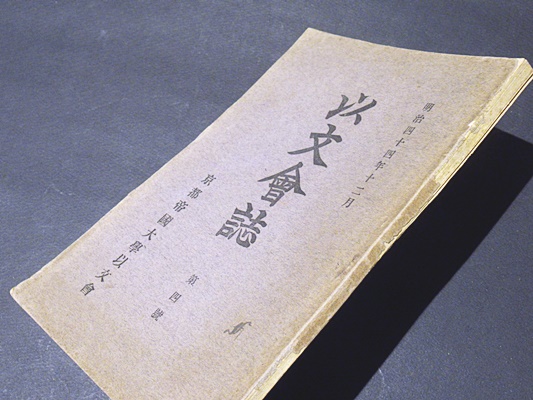 明治四十四年十二月
以文會誌
第四號
京都帝國大學以文會